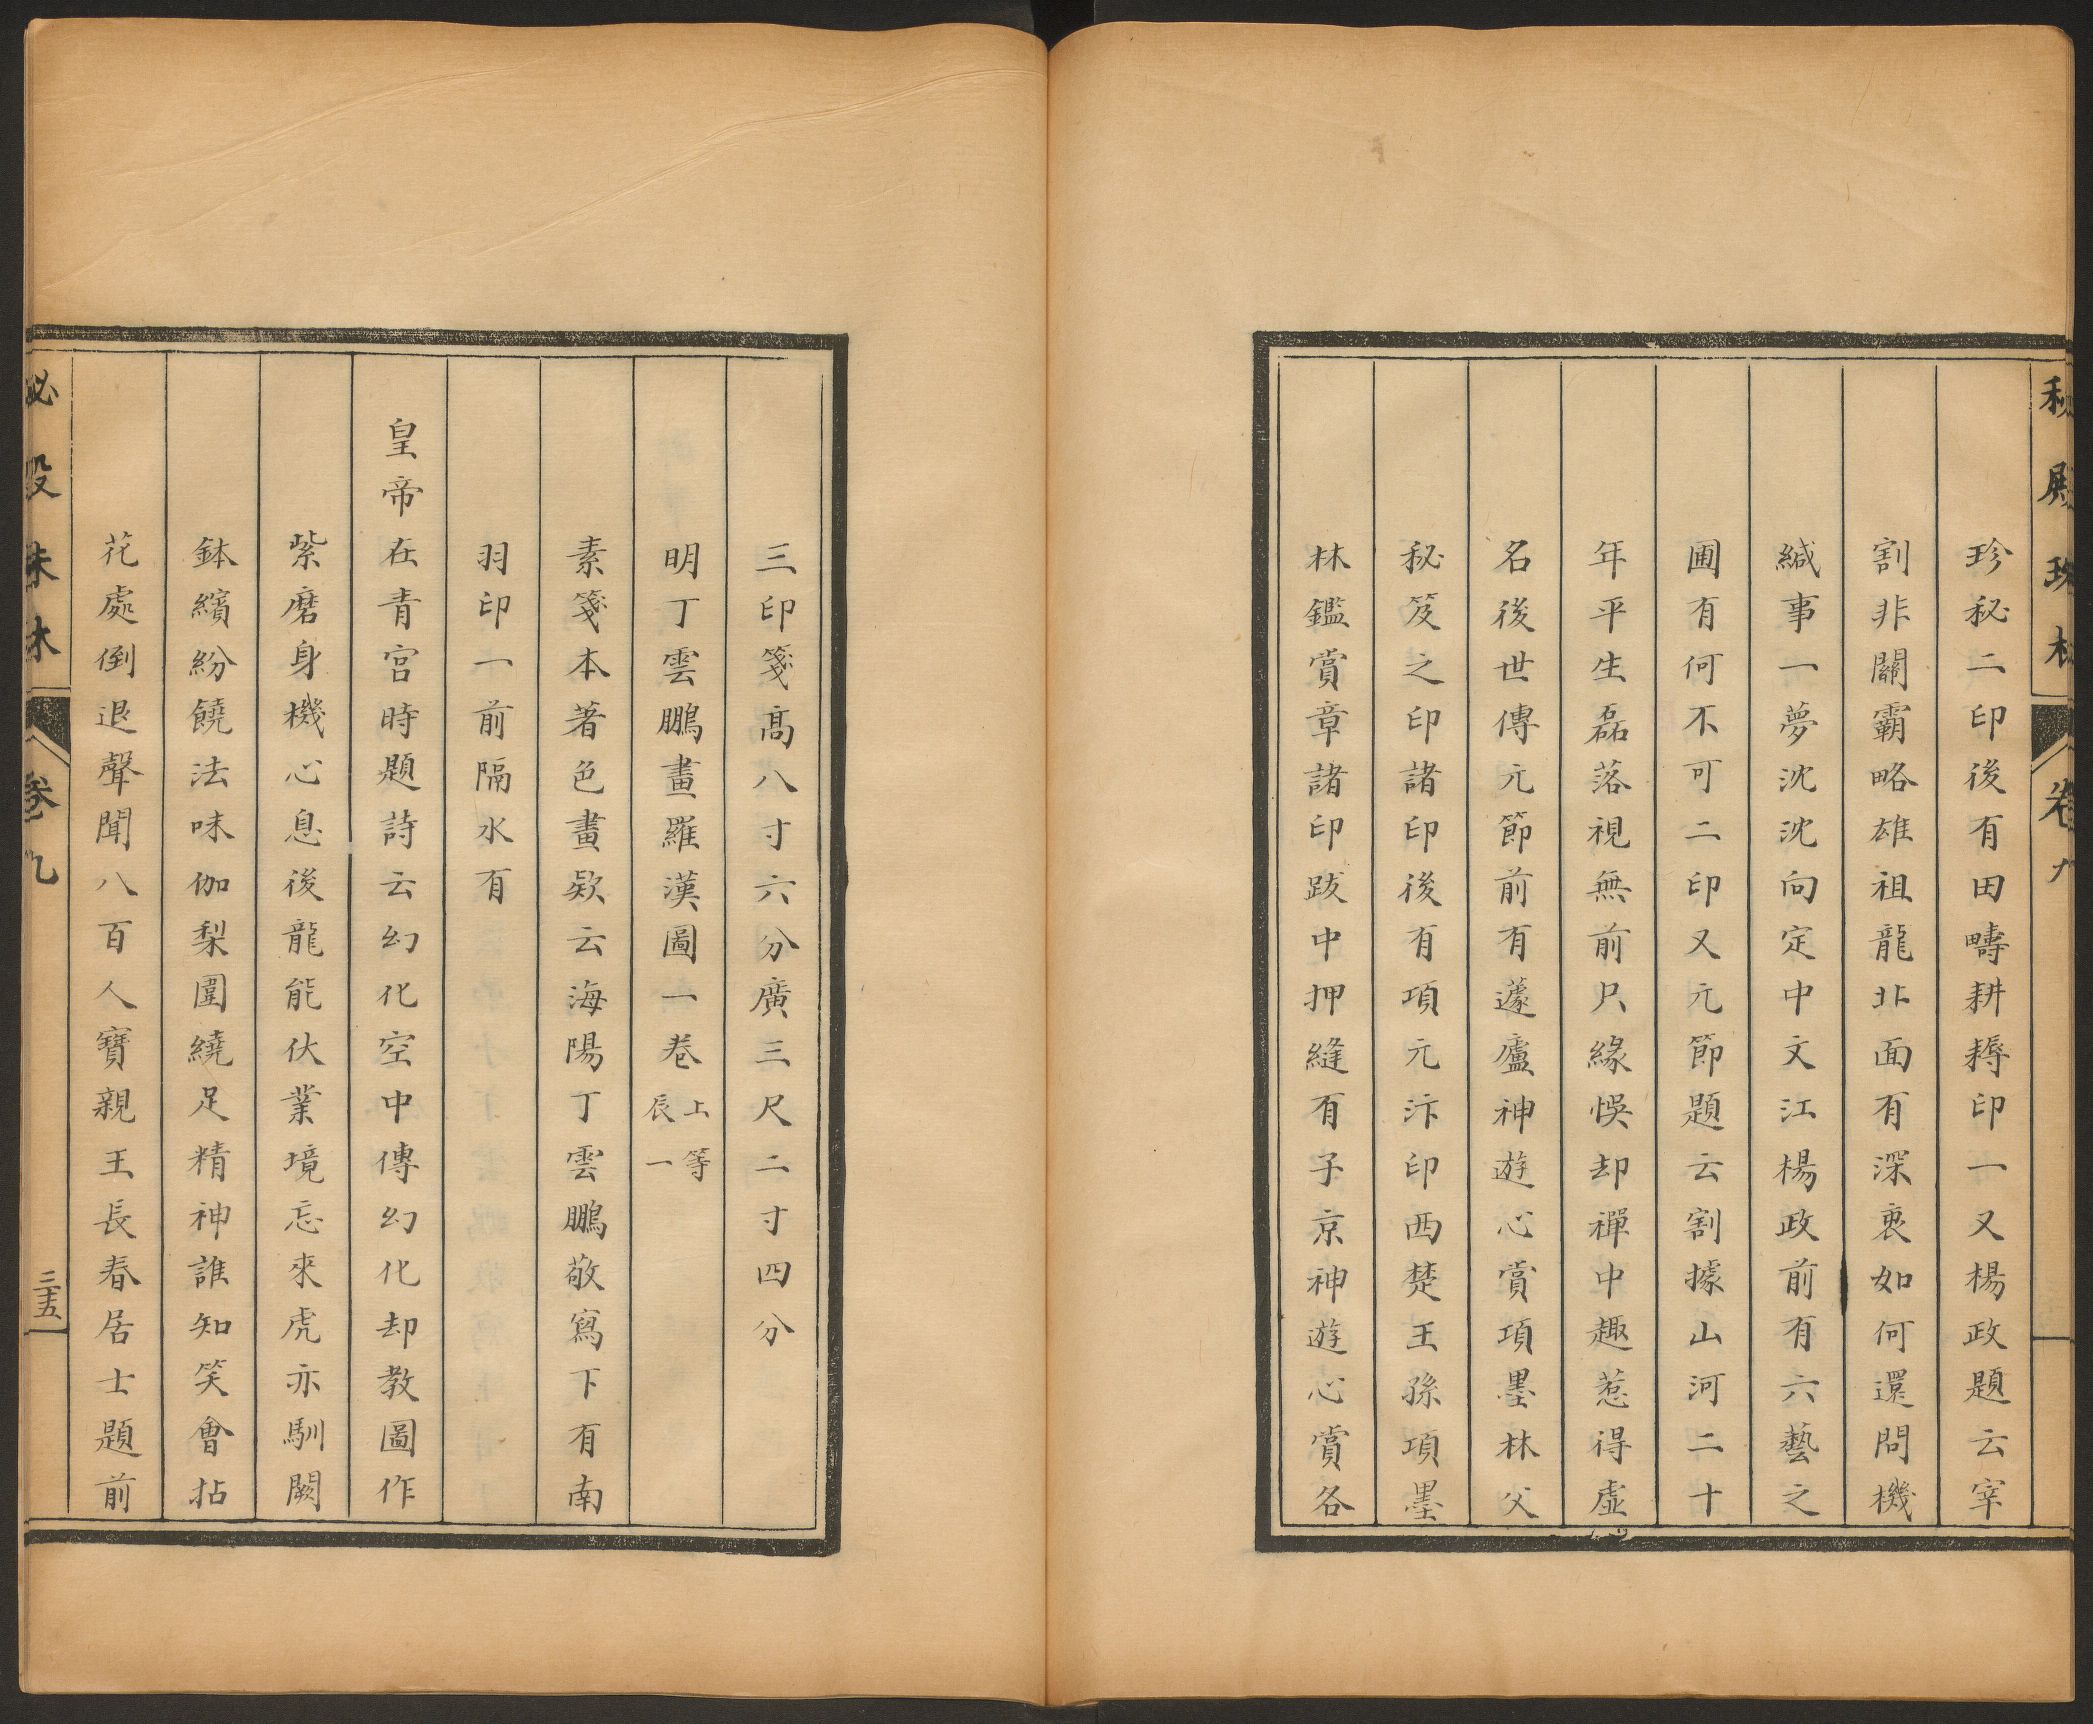 秘殿珠林 卷九
珍秘二印後有田疇耕耨印一又楊政題云宰
割非關霸略雄祖龍北面有深衷如何還問機
緘事一夢沈沈向定中文江楊政前有六藝之
圃有何不可二印又元節題云割據山河二十
年平生磊落視無前只緣悞却禪中趣惹得虛
名後世傳元節前有蘧廬神遊心賞項墨林父
秘笈之印諸印後有項元汴印西楚王孫項墨
林鑑賞章諸印跋中押縫有子京神遊心賞各
三印箋高八寸六分廣三尺二寸四分
明丁雲鵬畫羅漢圖一卷上等辰一
素箋本著色畫欵云海陽丁雲鵬敬寫下有南
羽印一前隔水有
皇帝在青宮時題詩云幻化空中傳幻化却教圖作
紫磨身機心息後龍能伏業境忘來虎亦馴闕
鉢繽紛饒法味伽梨圍繞足精神誰知笑會拈
花處倒退聲聞八百人寶親王長春居士題前
秘殿珠林 卷九 三五